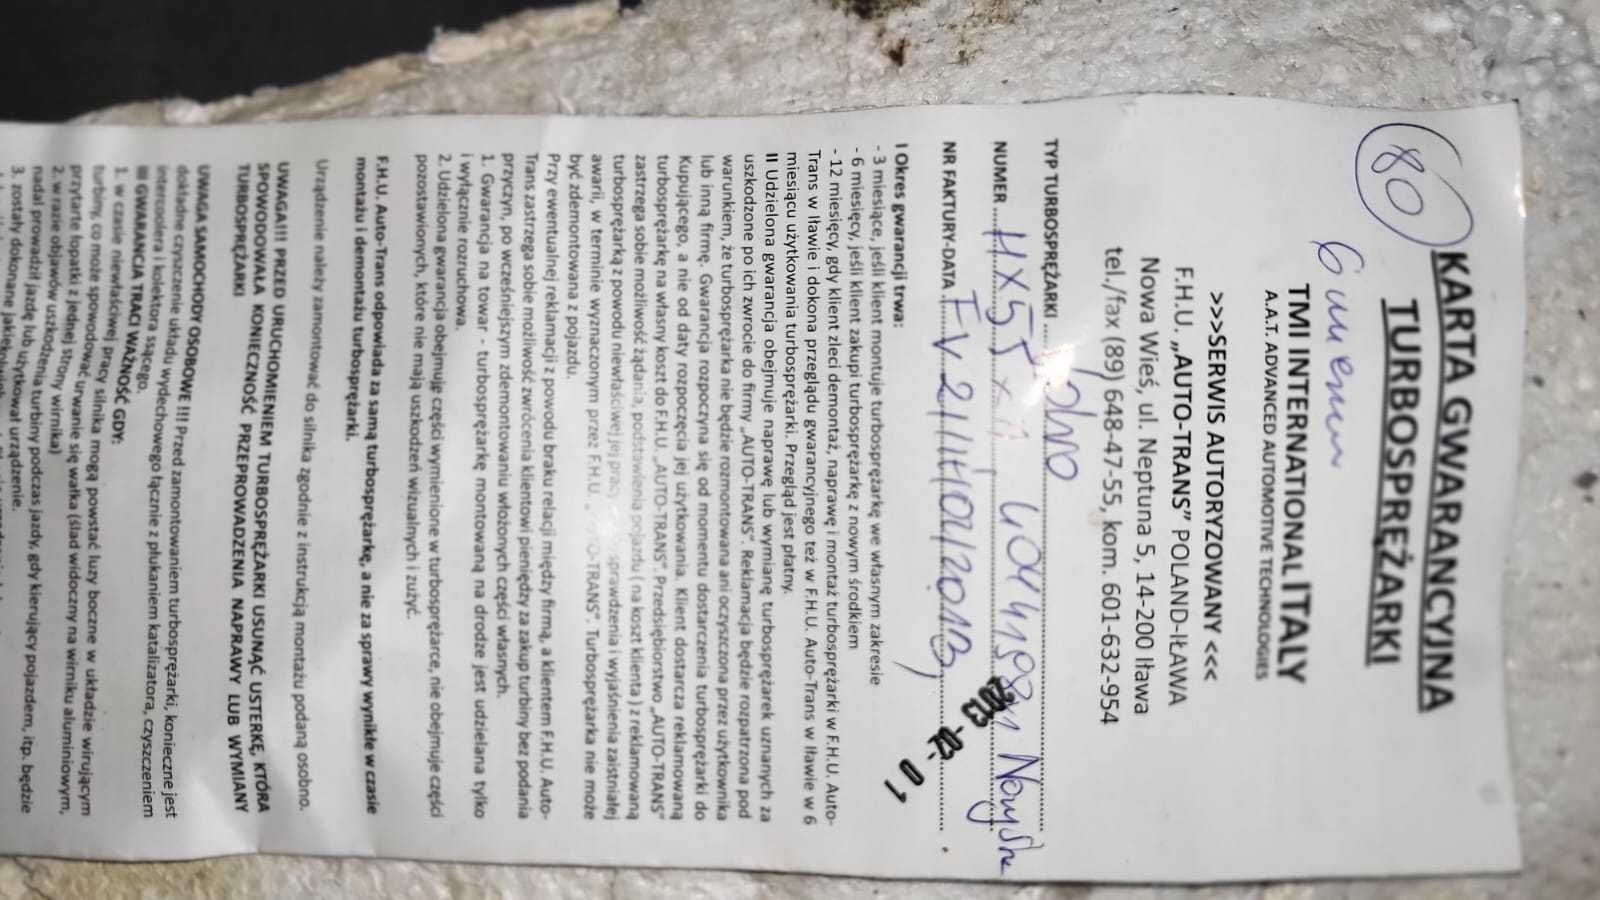 80
KARTA GWARANCYJNA
TURBOSPRĘŻARKI
6
TMI INTERNATIONAL ITALY
A.A.T. ADVANCED AUTOMOTIVE TECHNOLOGIES
>>>SERWIS AUTORYZOWANY <<<
F.H.U. „AUTO-TRANS” POLAND-IŁAWA
Nowa Wieś, ul. Neptuna 5, 14-200 Iława
tel./fax (89) 648-47-55, kom. 601-632-954
TYP TURBOSPRĘŻARKI
NUMER HX55
NR FAKTURY-DATA FV
I Okres gwarancji trwa:
- 3 miesiące, jeśli klient montuje turbosprężarkę we własnym zakresie
- 6 miesięcy, jeśli klient zakupi turbosprężarkę z nowym środkiem
- 12 miesięcy, gdy klient zleci demontaż, naprawę i montaż turbosprężarki w F.H.U. Auto-
Trans w Iławie i dokona przeglądu gwarancyjnego też w F.H.U. Auto-Trans w Iławie w 6
miesiącu użytkowania turbosprężarki. Przegląd jest płatny.
II Udzielona gwarancja obejmuje naprawę lub wymianę turbosprężarek uznanych za
uszkodzone po ich zwrocie do firmy „AUTO-TRANS”. Reklamacja będzie rozpatrzona pod
warunkiem, że turbosprężarka nie będzie rozmontowana ani oczyszczona przez użytkownika
lub inną firmę. Gwarancja rozpoczyna się od momentu dostarczenia turbosprężarki do
Kupującego, a nie od daty rozpoczęcia jej użytkowania. Klient dostarcza reklamowaną
turbosprężarkę na własny koszt do F.H.U. „AUTO-TRANS”. Przedsiębiorstwo „AUTO-TRANS”
zastrzega sobie możliwość żądania, podstawienia pojazdu ( na koszt klienta ) z reklamowaną
turbosprężarką z powodu niewłaściwej jej pracy sprawdzenia i wyjaśnienia zaistniałej
awarii, w terminie wyznaczonym przez F.H.U. „AUTO-TRANS”. Turbosprężarka nie może
być zdemontowana z pojazdu.
Przy ewentualnej reklamacji z powodu braku relacji między firmą, a klientem F.H.U. Auto-
Trans zastrzega sobie możliwość zwrócenia klientowi pieniędzy za zakup turbiny bez podania
przyczyn, po wcześniejszym zdemontowaniu włożonych części własnych.
1. Gwarancja na towar - turbosprężarkę montowaną na drodze jest udzielana tylko
i wyłącznie rozruchowa.
2. Udzielona gwarancja obejmuje części wymienione w turbosprężarce, nie obejmuje części
pozostawionych, które nie mają uszkodzeń wizualnych i zużyć.
F.H.U. Auto-Trans odpowiada za samą turbosprężarkę, a nie za sprawy wynikłe w czasie
montażu i demontażu turbosprężarki.
Urządzenie należy zamontować do silnika zgodnie z instrukcją montażu podaną osobno.
UWAGA!!! PRZED URUCHOMIENIEM TURBOSPRĘŻARKI USUNĄĆ USTERKĘ, KTÓRA
SPOWODOWAŁA KONIECZNOŚĆ PRZEPROWADZENIA NAPRAWY LUB WYMIANY
TURBOSPRĘŻARKI
UWAGA SAMOCHODY OSOBOWE !!! Przed zamontowaniem turbosprężarki, konieczne jest
dokładne czyszczenie układu wydechowego łącznie z płukaniem katalizatora, czyszczeniem
intercoolera i kolektora ssącego.
III GWARANCJA TRACI WAŻNOŚĆ GDY:
1. w czasie niewłaściwej pracy silnika mogą powstać luzy boczne w układzie wirującym
turbiny, co może spowodować urwanie się wałka (ślad widoczny na wirniku aluminiowym,
przytarte łopatki z jednej strony wirnika)
2. w razie objawów uszkodzenia turbiny podczas jazdy, gdy kierujący pojazdem, itp. będzie
nadal prowadził jazdę lub użytkował urządzenie.
3. zostały dokonane